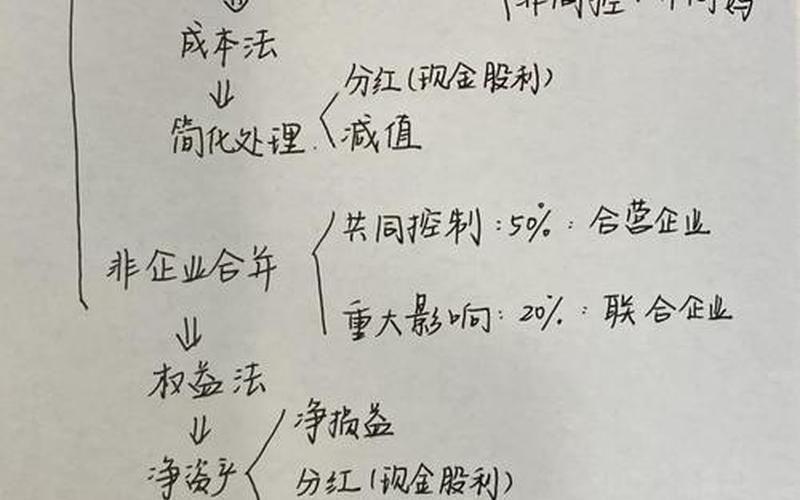 非同控:不同妈
成本法
分红(现金股利)
简化处理
减值
共同控制:50%:合营企业
非企业合并
重大影响:20%:联合企业
权益法
净损益
净资产
分红(现金股利)